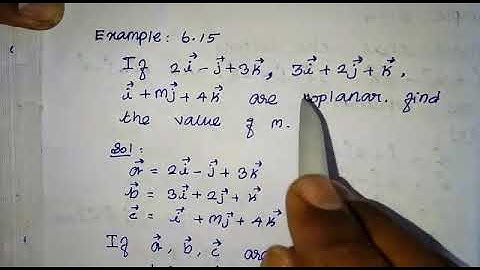 Example: 6.15
If 2i⃗ - j⃗ + 3k⃗, 3i⃗ + 2j⃗ + k⃗,
i⃗ + mj⃗ + 4k⃗ are coplanar. find
the value of m.
Sol:
a⃗ = 2i⃗ - j⃗ + 3k⃗
b⃗ = 3i⃗ + 2j⃗ + k⃗
c⃗ = i⃗ + mj⃗ + 4k⃗
If a⃗, b⃗, c⃗ are